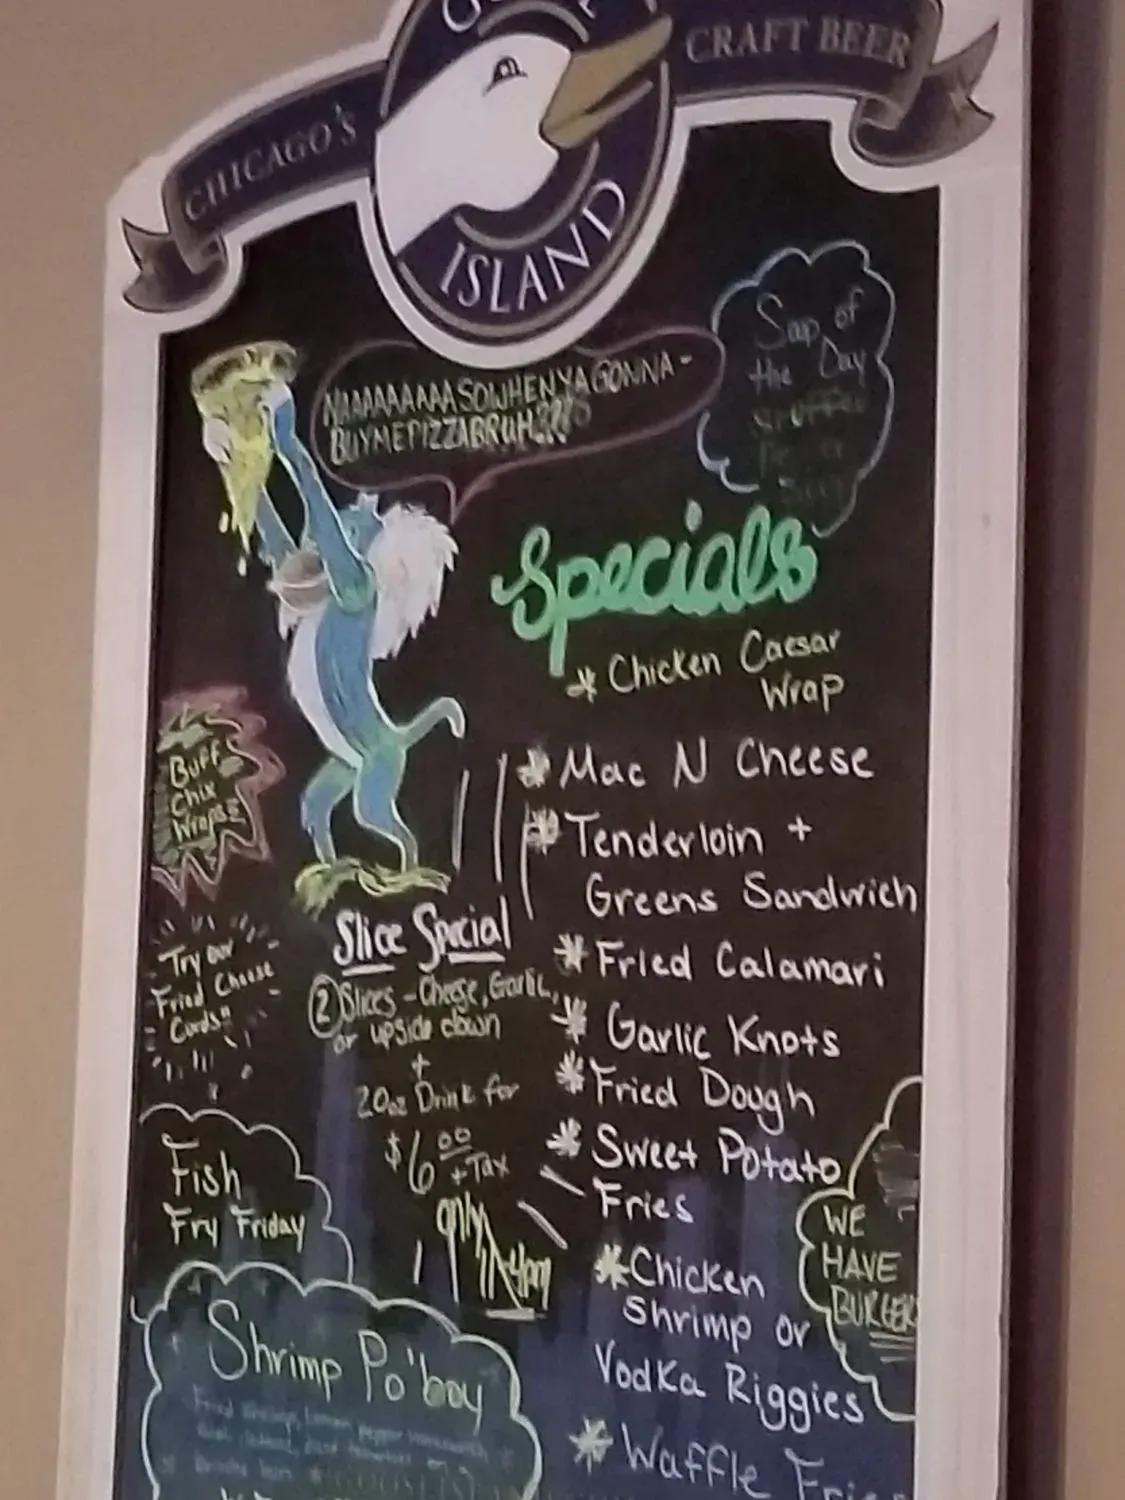 CHICAGO'S
CRAFT BEER
ISLAND
NAAAAAAAAASOWHENYAGONNA-
BUYMEPIZZABRUH????
Soup of
the Day
Specials
* Chicken Caesar
Wrap
* Mac N Cheese
* Tenderloin +
Greens Sandwich
* Fried Calamari
* Garlic Knots
* Fried Dough
* Sweet Potato
Fries
* Chicken
Shrimp or
Vodka Riggies
* Waffle Fries
Buff
Chix
Wraps
Try our
Fried Cheese
Curds"
Slice Special
2 Slices - Cheese, Garlic,
or upside down
+
20oz Drink for
$6.00
+ Tax
only
11-4pm
Fish
Fry Friday
WE
HAVE
BURGER
Shrimp Po'boy